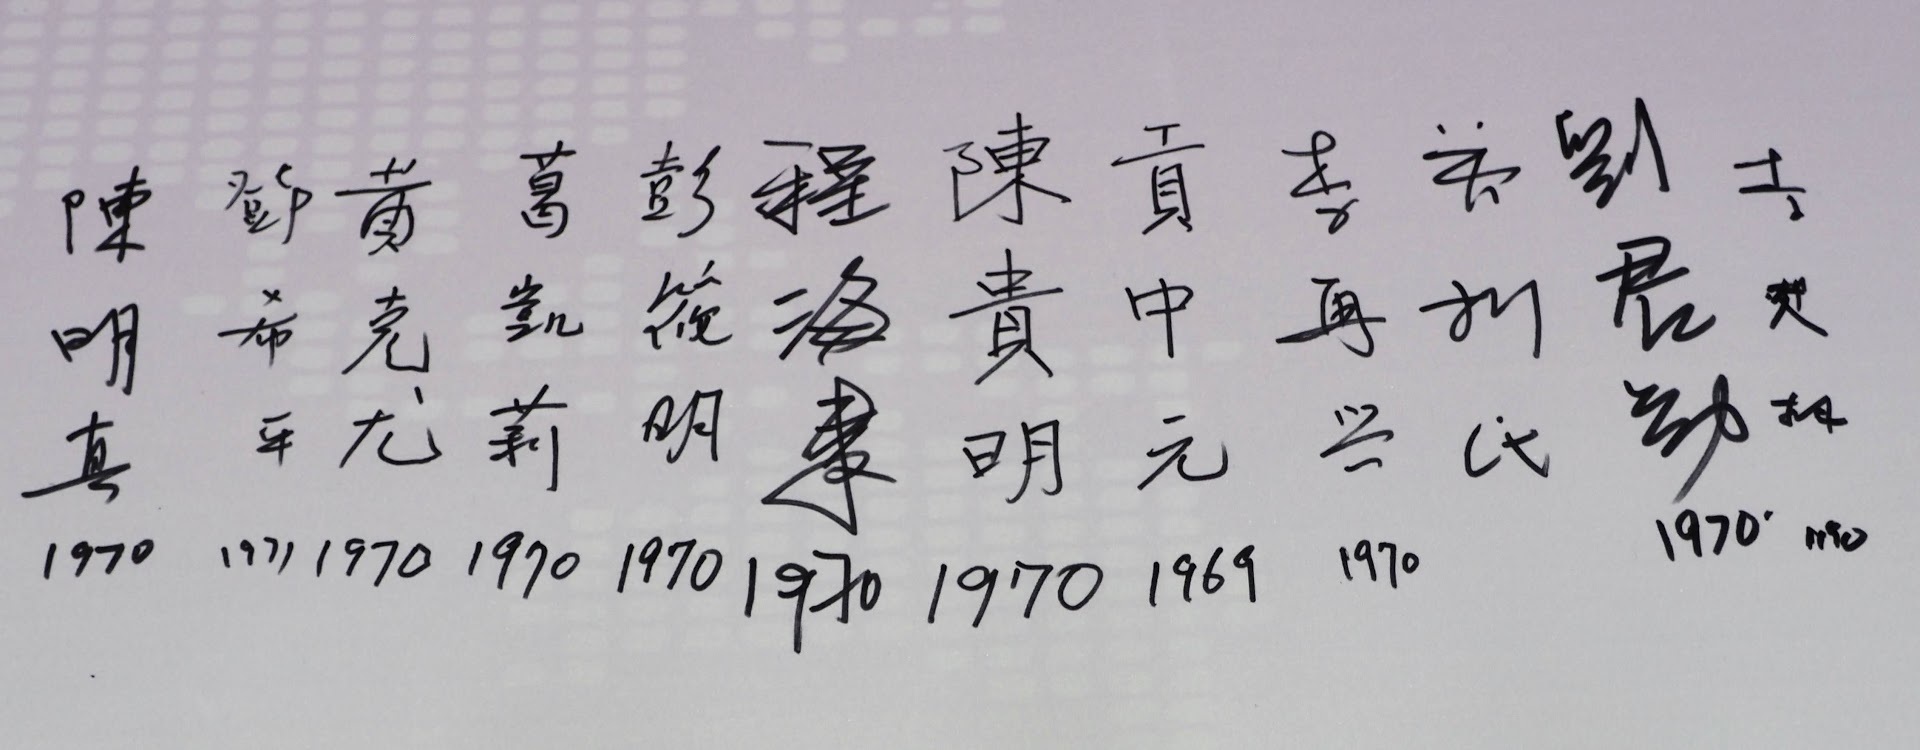 陳明真
1970
鄧希平
1971
黃克尤
1970
葛凱莉
1970
彭筱明
1970
程海東
1970
陳貴明
1970
貢中元
1969
李再兴
1970
劉君勁
1970